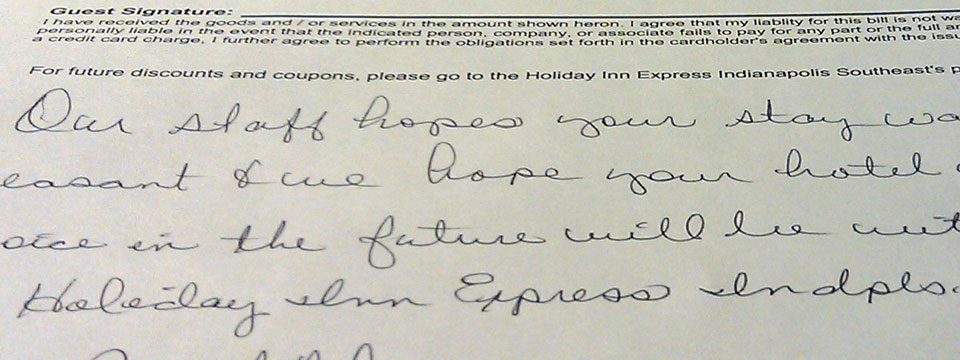 Guest Signature:
I have received the goods and / or services in the amount shown heron. I agree that my liablity for this bill is not wa
personally liable in the event that the indicated person, company, or associate fails to pay for any part or the full a
a credit card charge, I further agree to perform the obligations set forth in the cardholder's agreement with the issu
For future discounts and coupons, please go to the Holiday Inn Express Indianapolis Southeast's p
Our staff hopes your stay wa
easant & we hope your hotel
oice in the future will be wit
Holiday Inn Express Indpls.